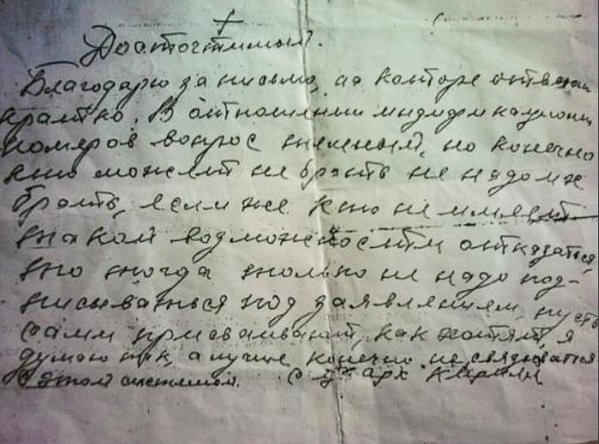 +
Досточтимый.
Благодарю за письмо, на которое отвечаю
кратко. В отношении индификационных
номеров вопрос сложный, но конечно
кто может не брать не надо их
брать, если же кто не имеет
такой возможности отказаться,
то тогда только не надо под-
писываться под заявлением, пусть
сами присваивают, как хотят, я
думаю так, а лучше конечно не связываться
с этой системой. арх Кирилл